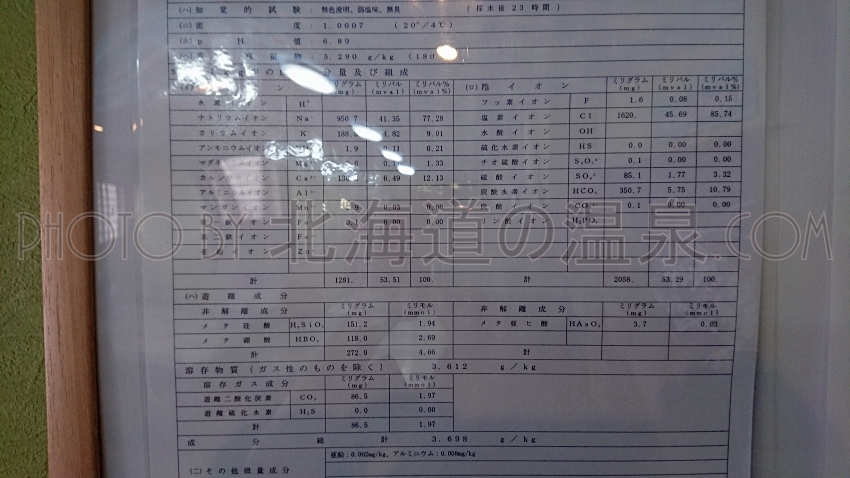 (ハ) 知覚的試験 : 無色澄明、弱塩味、無臭 (採水後23時間)
(ニ) 密度 : 1.0007 (20°/4℃)
(ホ) pH値 : 6.89
物 : 3.290 g/kg (180
分量及び組成
イオン ミリグラム (mg) ミリバル (mval) ミリバル% (mval%) (ロ) 陰イオン ミリグラム (mg) ミリバル (mval) ミリバル% (mval%)
水素イオン H⁺ フッ素イオン F⁻ 1.6 0.08 0.15
ナトリウムイオン Na⁺ 950.7 41.35 77.29 塩素イオン Cl⁻ 1620. 45.69 85.74
カリウムイオン K⁺ 188. 4.82 9.01 水酸イオン OH⁻
アンモニウムイオン 1.9 0.11 0.21 硫化水素イオン HS⁻ 0.0 0.00 0.00
マグネシウムイオン 1.33 チオ硫酸イオン S₂O₃²⁻ 0.1 0.00 0.00
カルシウムイオン Ca²⁺ 6.49 12.13 硫酸イオン SO₄²⁻ 85.1 1.77 3.32
アルミニウムイオン Al³⁺ 炭酸水素イオン HCO₃⁻ 350.7 5.75 10.79
マンガンイオン 0.03 0.06 炭酸イオン CO₃²⁻ 0.1 0.00 0.00
イオン 0.1 0.00 0.00 リン酸イオン H₂PO₄⁻
イオン Fe
イオン Zn
計 1281. 53.51 100. 計 2058. 53.29 100.
(ハ) 遊離成分
非解離成分 ミリグラム (mg) ミリモル (mmol) 非解離成分 ミリグラム (mg) ミリモル (mmol)
メタ珪酸 H₂SiO₃ 151.2 1.94 メタ亜ヒ酸 HAsO₂ 3.7 0.03
メタ硼酸 HBO₂ 118.0 2.69
計 272.9 4.66 計
溶存物質 (ガス性のものを除く) 3.612 g/kg
溶存ガス成分 ミリグラム (mg) ミリモル (mmol)
遊離二酸化炭素 CO₂ 86.5 1.97
遊離硫化水素 H₂S 0.0 0.00
計 86.5 1.97
成分総計 3.698 g/kg
(ニ) その他微量成分 亜鉛:0.002mg/kg、アルミニウム:0.008mg/kg
PHOTO BY 北海道の温泉.COM